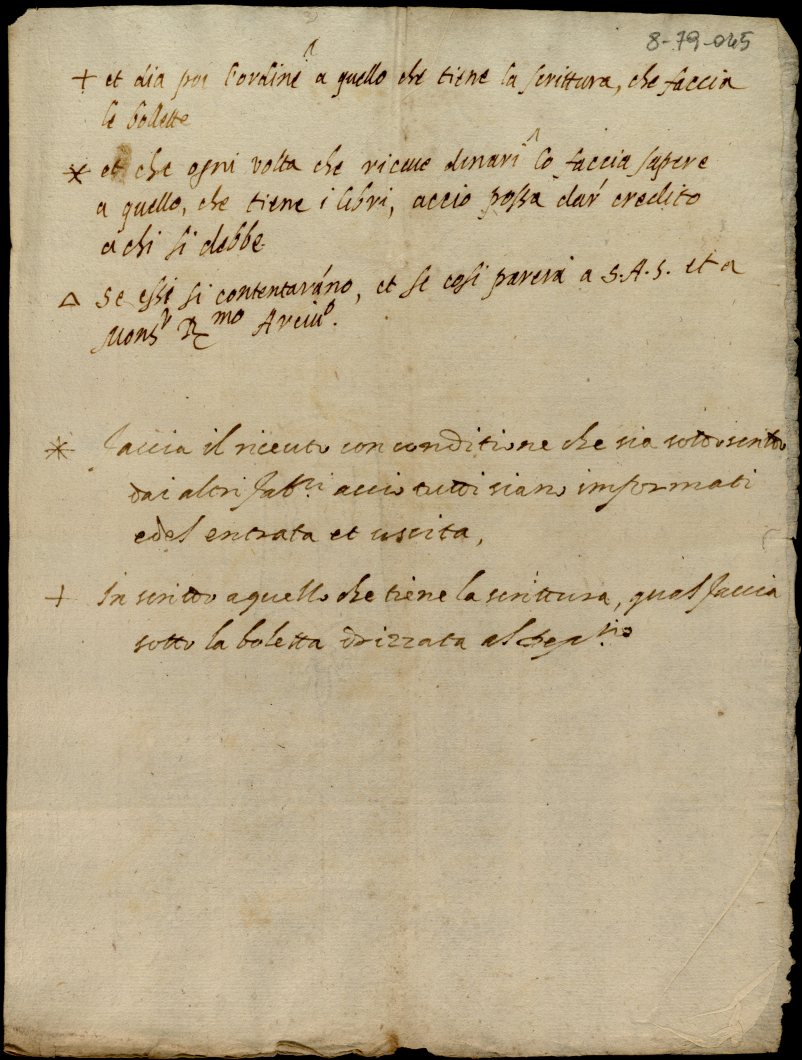 8-79-045
+ et dia poi l'ordine ^ a quello che tiene la scrittura, che faccia
le bollette
* et che ogni volta che riceue denari ^ lo faccia sapere
a quello, che tiene i libri, accio possa dar' credito
a chi si debbe
Δ se essi si contentaranno, et se cosi parera a S.A.S. et a
Mons.r R.mo Arciu.o
* faccia il riceuto con conditione che sia sottoscritto
dai altri fab.ri accio tutti siano informati
e del entrata et uscita,
+ In scritto a quello che tiene la scrittura, qual faccia
sotto la boletta drizzata al depos.rio